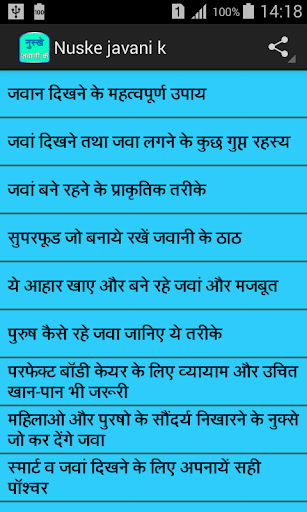 100
100%
14:18
नुस्खे
जवानी के
Nuske javani k
जवान दिखने के महत्वपूर्ण उपाय
जवां दिखने तथा जवा लगने के कुछ गुप्त रहस्य
जवां बने रहने के प्राकृतिक तरीके
सुपरफूड जो बनाये रखें जवानी के ठाठ
ये आहार खाए और बने रहे जवां और मजबूत
पुरुष कैसे रहे जवा जानिए ये तरीके
परफेक्ट बॉडी केयर के लिए व्यायाम और उचित
खान-पान भी जरूरी
महिलाओ और पुरषो के सौंदर्य निखारने के नुक्से
जो कर देंगे जवा
स्मार्ट व जवां दिखने के लिए अपनायें सही
पॉश्चर